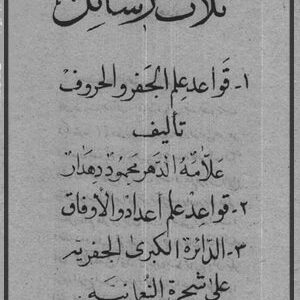 ثلاث رسائل
١- قواعد علم الجفر والحروف
تأليف
علامه الدهر محمود دهدار
٢- قواعد علم اعداد والأوفاق
٣- الدائرة الكبرى الجفرية
على شجرة النعانيه.